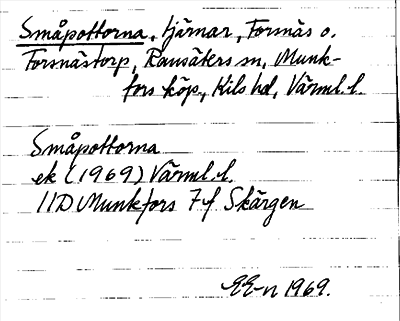 Småpottorna, tjärnar, Forsnäs o.
Forsnästorp, Ransäters sn, Munk-
fors köp., Kils hd, Värml. l.
Småpottorna
ek (1969) Värml. l.
11D Munkfors 7f Skärgen
EE-n 1969.